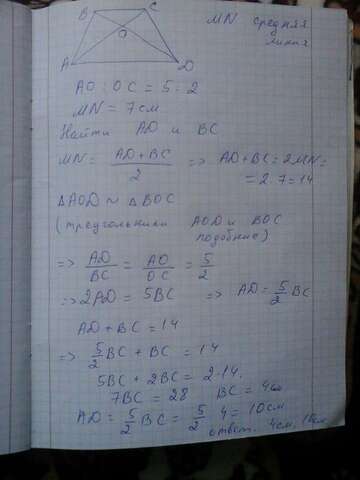 B C
MN средняя
линия
O
A D
AO : OC = 5 : 2
MN = 7 см
Найти AD и BC
MN = (AD + BC)/2 => AD + BC = 2MN =
= 2 · 7 = 14
ΔAOD ~ ΔBOC
(треугольники AOD и BOC
подобние)
=> AD/BC = AO/OC = 5/2
=> 2AD = 5BC => AD = 5/2 BC
AD + BC = 14
=> 5/2 BC + BC = 14
5BC + 2BC = 2 · 14.
7BC = 28 BC = 4см
AD = 5/2 BC = 5/2 4 = 10см
ответ. 4см, 10см